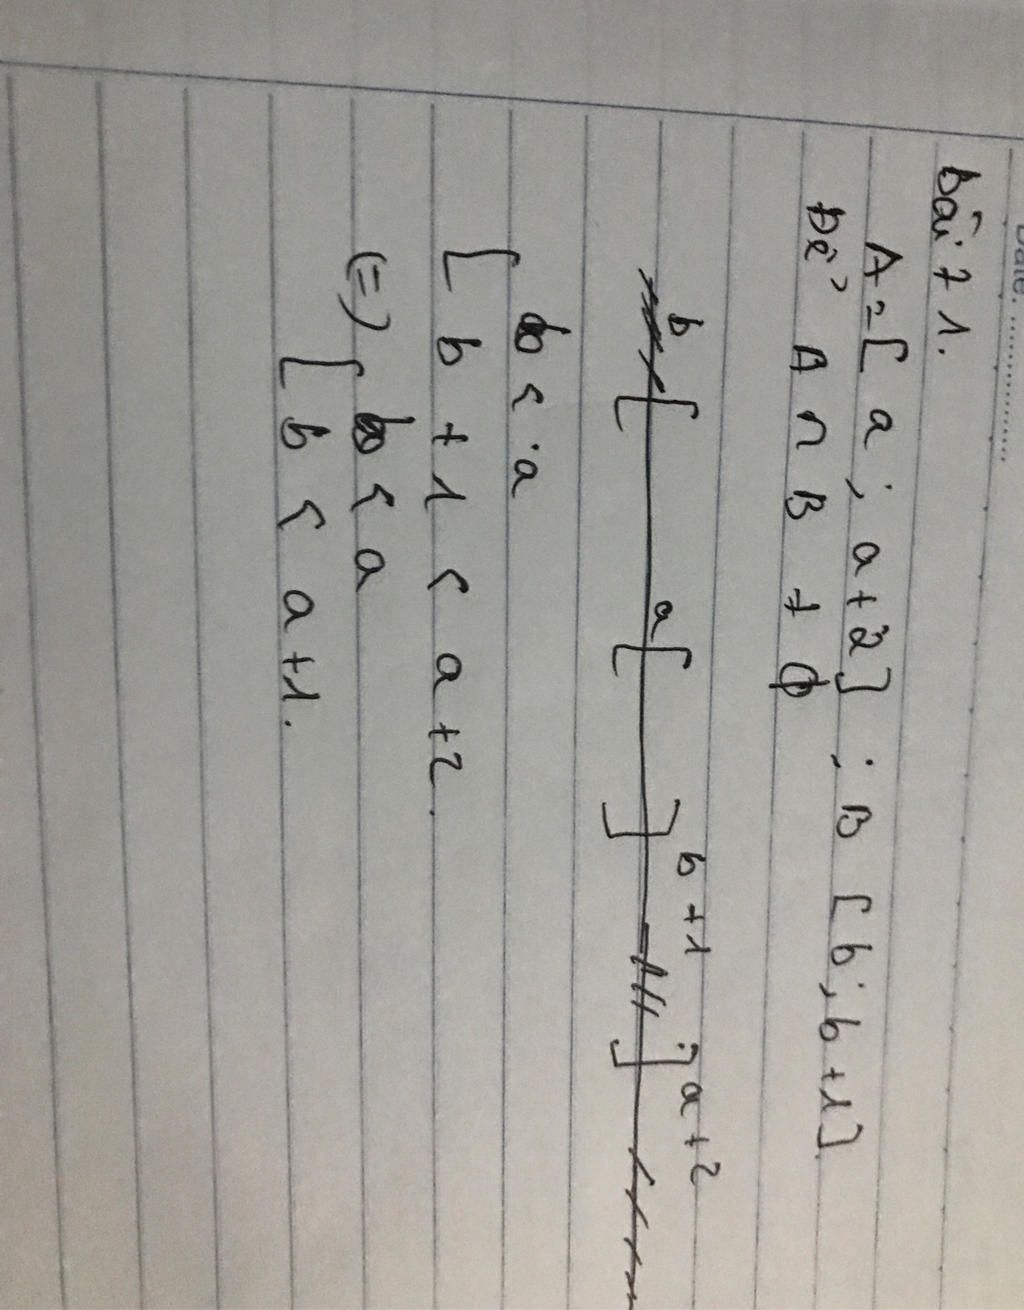 Date:
bài 71.
A = [a ; a+2] ; B [b ; b+1]
Để A ∩ B ≠ ∅
b a b+1 a+2
[ b < a
[ b + 1 < a + 2.
(=) [ b < a
[ b < a + 1.